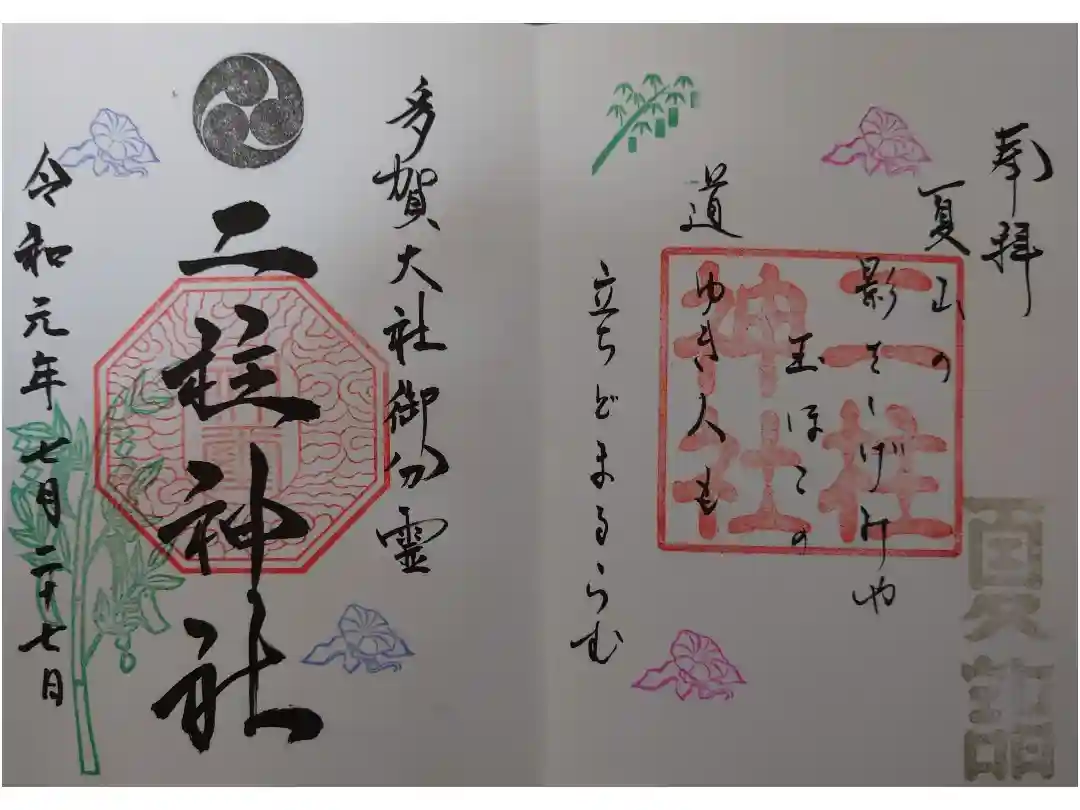 奉拝
夏山の
影をしげみや
玉ほこの
道
ゆき人も
立ちどまるらむ
二柱
神社
夏詣
多賀大社御分霊
二柱神社
令和元年七月二十七日